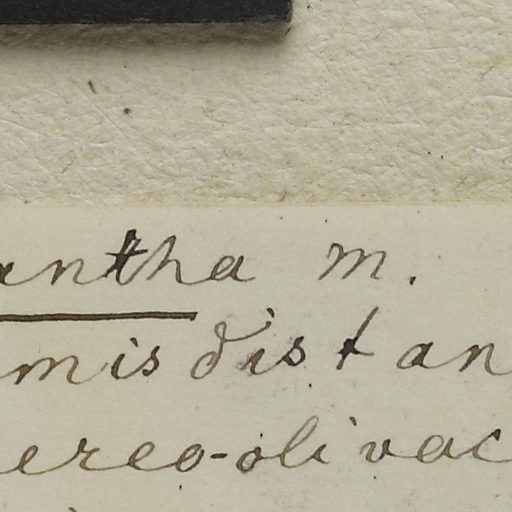 antha m.
mis distan
ereo-olivac